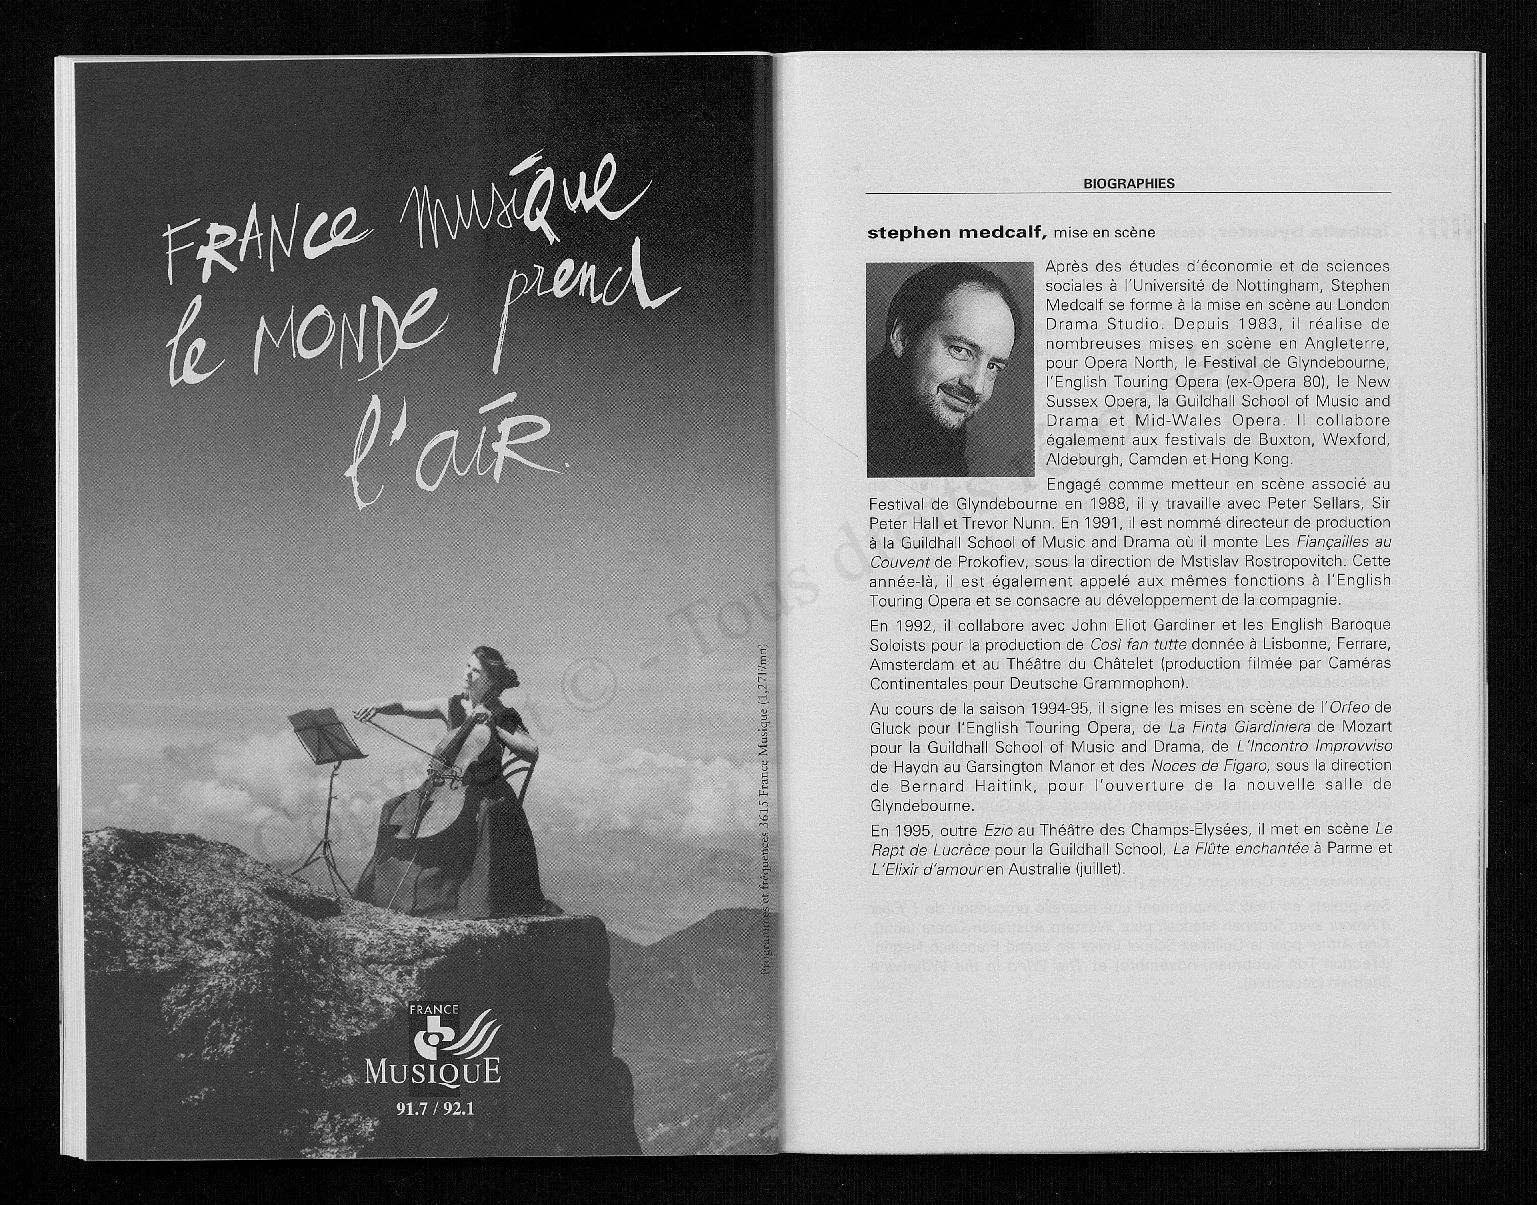 FRANCE musique
le MONDE prend
l'aiR.
Programmes et fréquences 3615 France Musique (1,27F/mn)
FRANCE
MUSIQUE
91.7 / 92.1
BIOGRAPHIES
stephen medcalf, mise en scène
Après des études d'économie et de sciences
sociales à l'Université de Nottingham, Stephen
Medcalf se forme à la mise en scène au London
Drama Studio. Depuis 1983, il réalise de
nombreuses mises en scène en Angleterre,
pour Opera North, le Festival de Glyndebourne,
l'English Touring Opera (ex-Opera 80), le New
Sussex Opera, la Guildhall School of Music and
Drama et Mid-Wales Opera. Il collabore
également aux festivals de Buxton, Wexford,
Aldeburgh, Camden et Hong Kong.
Engagé comme metteur en scène associé au
Festival de Glyndebourne en 1988, il y travaille avec Peter Sellars, Sir
Peter Hall et Trevor Nunn. En 1991, il est nommé directeur de production
à la Guildhall School of Music and Drama où il monte Les Fiançailles au
Couvent de Prokofiev, sous la direction de Mstislav Rostropovitch. Cette
année-là, il est également appelé aux mêmes fonctions à l'English
Touring Opera et se consacre au développement de la compagnie.
En 1992, il collabore avec John Eliot Gardiner et les English Baroque
Soloists pour la production de Così fan tutte donnée à Lisbonne, Ferrare,
Amsterdam et au Théâtre du Châtelet (production filmée par Caméras
Continentales pour Deutsche Grammophon).
Au cours de la saison 1994-95, il signe les mises en scène de l'Orfeo de
Gluck pour l'English Touring Opera, de La Finta Giardiniera de Mozart
pour la Guildhall School of Music and Drama, de L'Incontro Improvviso
de Haydn au Garsington Manor et des Noces de Figaro, sous la direction
de Bernard Haitink, pour l'ouverture de la nouvelle salle de
Glyndebourne.
En 1995, outre Ezio au Théâtre des Champs-Elysées, il met en scène Le
Rapt de Lucrèce pour la Guildhall School, La Flûte enchantée à Parme et
L'Elixir d'amour en Australie (juillet).
© - Tous